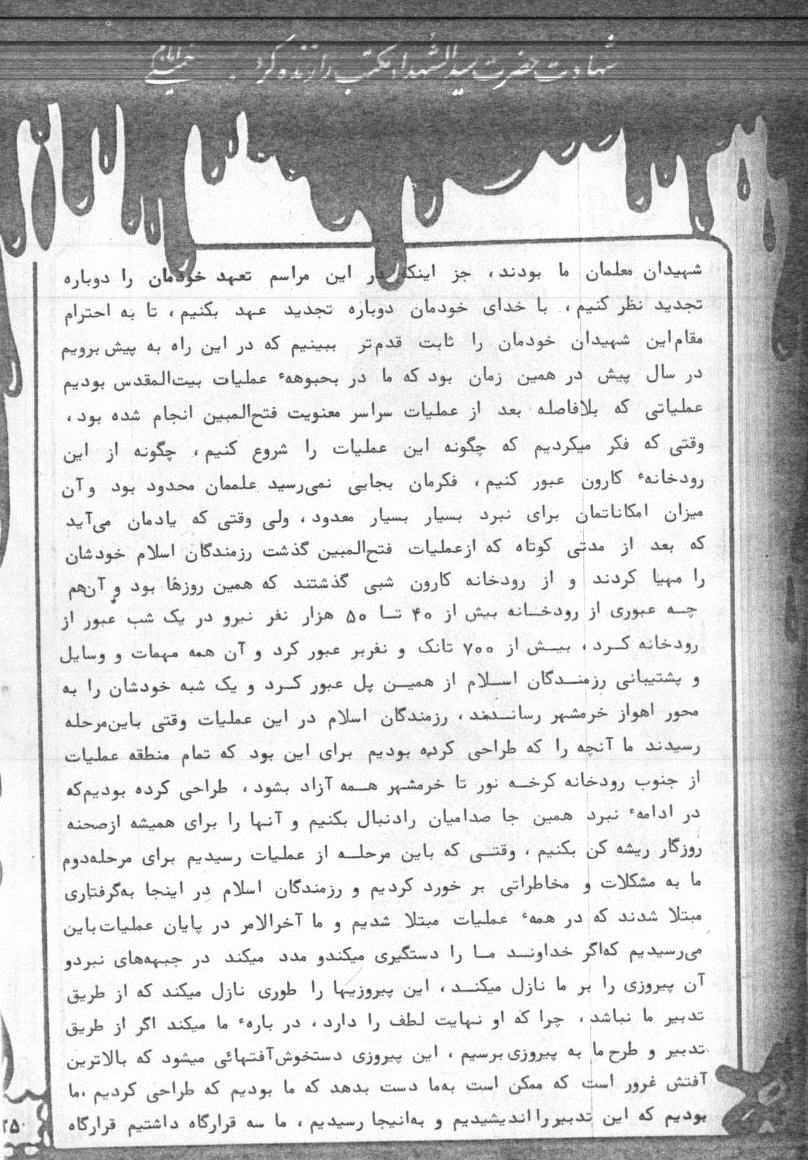 شهادت حضرت سیدالشهداء مکتب را زنده کرد. امام خمینی
شهیدان معلمان ما بودند، جز اینکه در این مراسم تعهد خودمان را دوباره
تجدید نظر کنیم، با خدای خودمان دوباره تجدید عهد بکنیم، تا به احترام
مقام‌این شهیدان خودمان را ثابت قدم‌تر ببینیم که در این راه به پیش‌برویم
در سال پیش در همین زمان بود که ما در بحبوههٔ عملیات بیت‌المقدس بودیم
عملیاتی که بلافاصله بعد از عملیات سراسر معنویت فتح‌المبین انجام شده بود،
وقتی که فکر میکردیم که چگونه این عملیات را شروع کنیم، چگونه از این
رودخانهٔ کارون عبور کنیم، فکرمان بجایی نمی‌رسید علممان محدود بود و آن
میزان امکاناتمان برای نبرد بسیار بسیار معدود، ولی وقتی که یادمان می‌آید
که بعد از مدتی کوتاه که ازعملیات فتح‌المبین گذشت رزمندگان اسلام خودشان
را مهیا کردند و از رودخانه کارون شبی گذشتند که همین روزها بود و آن‌هم
چه عبوری از رودخانه بیش از ۴۰ تا ۵۰ هزار نفر نیرو در یک شب عبور از
رودخانه کرد، بیش از ۷۰۰ تانک و نفربر عبور کرد و آن همه مهمات و وسایل
و پشتیبانی رزمندگان اسلام از همین پل عبور کرد و یک شبه خودشان را به
محور اهواز خرمشهر رساندند، رزمندگان اسلام در این عملیات وقتی باین‌مرحله
رسیدند ما آنچه را که طراحی کرده بودیم برای این بود که تمام منطقه عملیات
از جنوب رودخانه کرخه نور تا خرمشهر همه آزاد بشود، طراحی کرده بودیم‌که
در ادامهٔ نبرد همین جا صدامیان رادنبال بکنیم و آنها را برای همیشه ازصحنه
روزگار ریشه کن بکنیم، وقتی که باین مرحله از عملیات رسیدیم برای مرحله‌دوم
ما به مشکلات و مخاطراتی بر خورد کردیم و رزمندگان اسلام در اینجا به‌گرفتاری
مبتلا شدند که در همهٔ عملیات مبتلا شدیم و ما آخرالامر در پایان عملیات باین
می‌رسیدیم که‌اگر خداوند ما را دستگیری میکندو مدد میکند در جبهه‌های نبردو
آن پیروزی را بر ما نازل میکند، این پیروزیها را طوری نازل میکند که از طریق
تدبیر ما نباشد، چرا که او نهایت لطف را دارد، در بارهٔ ما میکند اگر از طریق
تدبیر و طرح‌ما به پیروزی برسیم، این پیروزی دستخوش‌آفتهائی میشود که بالاترین
آفتش غرور است که ممکن است به‌ما دست بدهد که ما بودیم که طراحی کردیم،ما
بودیم که این تدبیررااندیشیدیم و به‌اینجا رسیدیم، ما سه قرارگاه داشتیم قرارگاه
۲۵۰